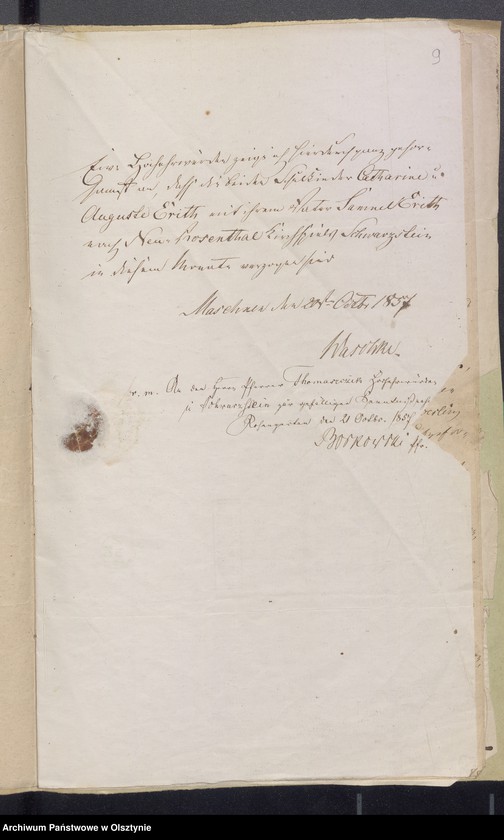 9
Euer Hochehrwürden zeige ich hierdurch ganz gehor-
samst an, daß die beiden Schulkinder Catharine u.
Auguste Erith, mit ihrem Vater Samuel Erith
nach Neu-Rosenthal Kirchspiels Schwarzstein
in diesem Monate verzogen sind
Maschnen den 20t Octbr. 1857
An den Herrn Pfarrer Thomasczick Hochehrwürden
zu Schwarzstein zur gefälligen Kenntnißnahme
Rosengarten den 21 Octbr. 1857
Boskowski
Archiwum Państwowe w Olsztynie